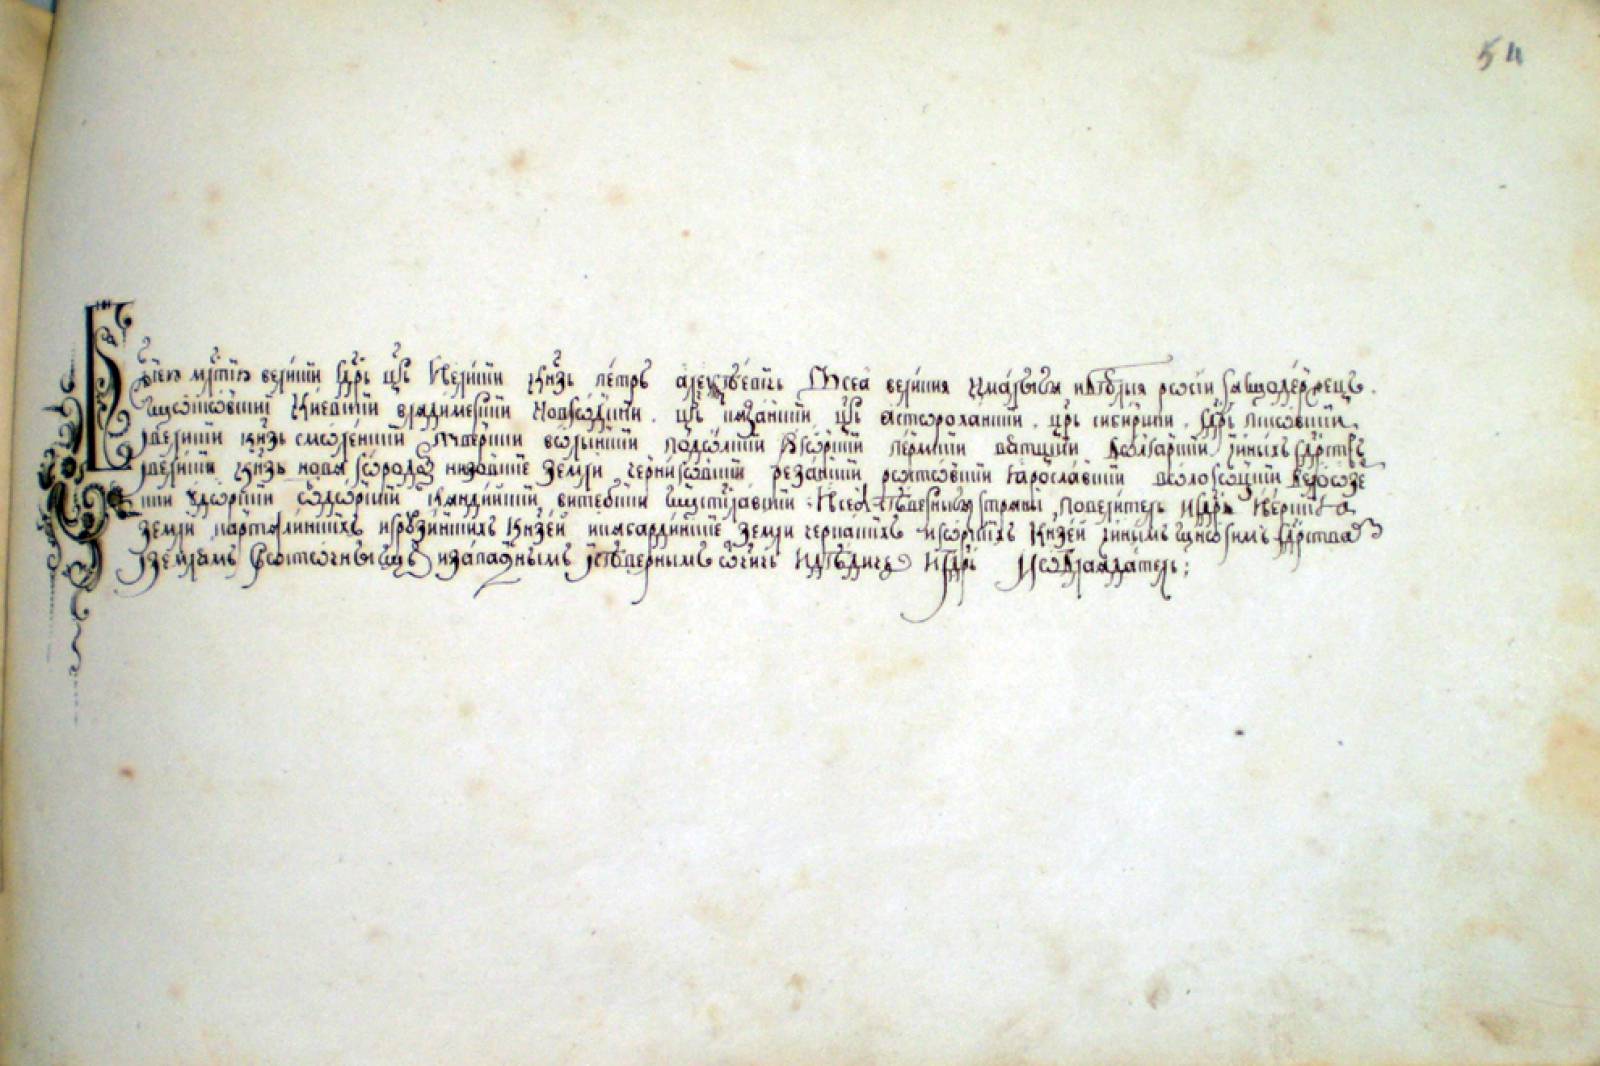 54
Бжиею млтию великий гдрь црь и великий кнзь петръ алеѯѣевичь всеа великия и малыя и бѣлыя росии самодержецъ.
московский киевский владимерский новгородцкий. црь казанский црь астороханский. црь сибирский. гдрь псковский
и великий кнзь смоленский тверский волынский подолский югорский пермский вятцкий болгарский и иных гдрствъ
и великий кнзь нова города низовские земли черниговский резанский ростовский ярославский белоозе
ский удорский обдорский кондийский витебский мстиславский и всеа сѣверныя страны повелитель и гдрь иверские
земли карталинскихъ и грузинскихъ кнзей и кабардинские земли черкаскихъ и горскихъ кнзей и инымъ многимъ гдрства
и землямъ восточнымъ и западнымъ и сѣвернымъ отчичь и дѣдичь и гдрь и облаадатель: